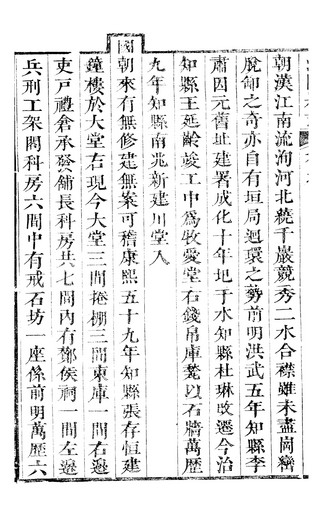 朝漢江南流洵河北繞千巖競秀二水合襟雖未盡岡巒
脫卸之奇亦自有垣局迴環之勢前明洪武五年知縣李
肅因元舊址建署成化十年圯于水知縣杜琳改遷今治
知縣王延齡竣工中爲牧愛堂右錢帛庫甃以石牆萬歷
九年知縣南兆新建川堂入
國朝來有無修建無案可稽康熙五十九年知縣張存恒建
鐘樓於大堂右現今大堂三間捲棚三間東庫一間右邊
吏戶禮倉承發舖長科房共七間內有鄼侯祠一間左邊
兵刑工架閣科房六間中有戒石坊一座係前明萬歷六